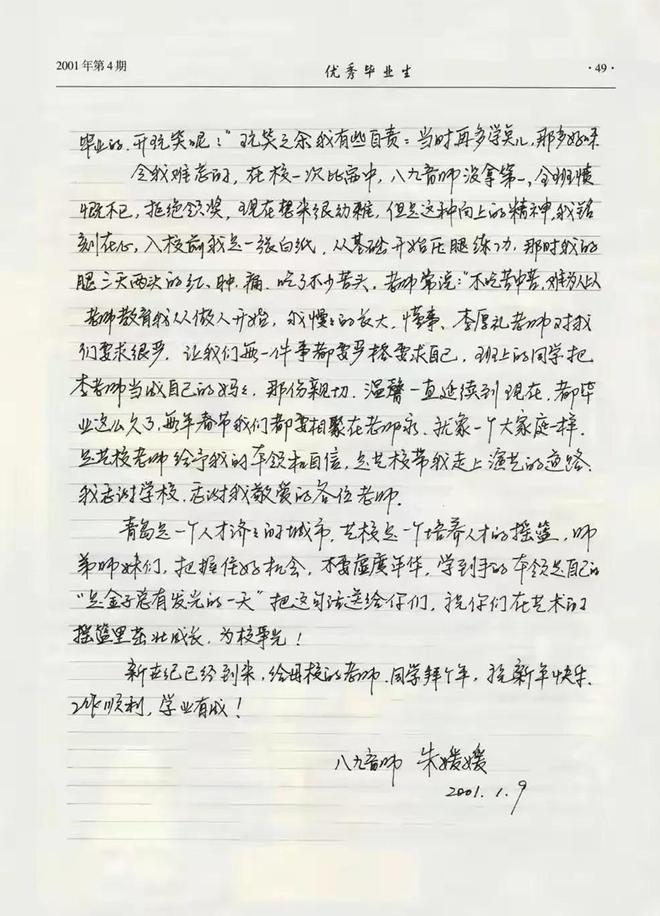 2001年第4期
优秀毕业生
·49·
毕业的.开玩笑呢!"玩笑之余我有些自责:当时再多学点儿,那多好呀
令我难忘的,在校一次比赛中,八九音师没拿第一,全班愤
慨不已,拒绝领奖,现在想来很幼稚,但是这种向上的精神,我铭
刻在心,入校前我是一张白纸,从基础开始压腿练功,那时我的
腿三天两头的红、肿、痛、吃了不少苦头,老师常说:"不吃苦中苦,难为人上人
老师教育我从做人开始,我慢慢的长大、懂事、李厚礼老师对我
们要求很严,让我们每一件事都要严格要求自己,班上的同学把
李老师当成自己的妈妈,那份亲切、温馨一直延续到现在,都毕
业这么久了,每年春节我们都要相聚在老师家,就象一个大家庭一样.
是艺校老师给予我的本领和自信,是艺校带我走上演艺的道路.
我感谢学校.感谢我敬爱的各位老师.
青岛是一个人才济济的城市,艺校是一个培养人才的摇篮,师
弟师妹们,把握住好机会,不要虚度年华,学到手的本领是自己的
"是金子总有发光的一天"把这句话送给你们,祝你们在艺术的
摇篮里茁壮成长,为校争光!
新世纪已经到来,给母校的老师、同学拜个年,祝新年快乐、
工作顺利,学业有成!
八九音师 朱媛媛
2001.1.9